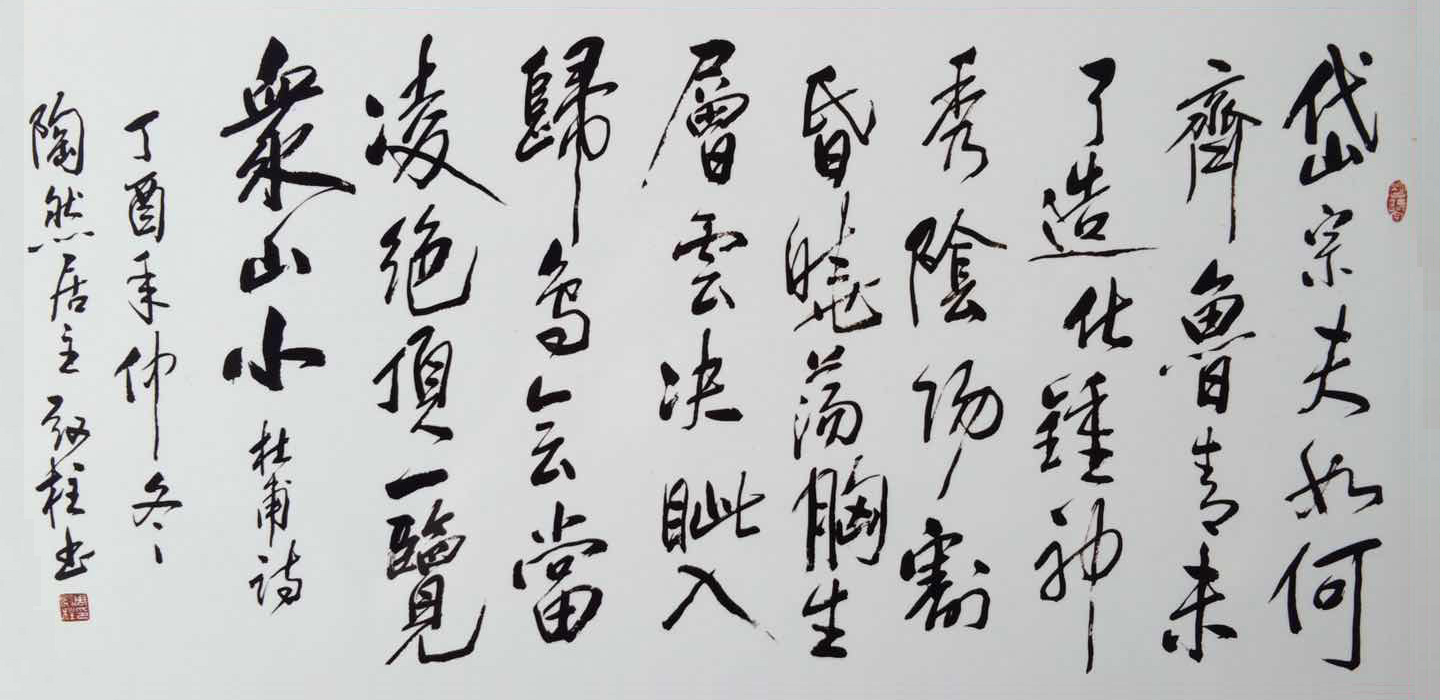 岱宗夫如何
齊魯青未
了造化鍾神
秀陰陽割
昏曉蕩胸生
層雲決眦入
歸鳥会當
凌絕頂一覽
衆山小杜甫詩
丁酉年仲冬
陶然居主 柱书